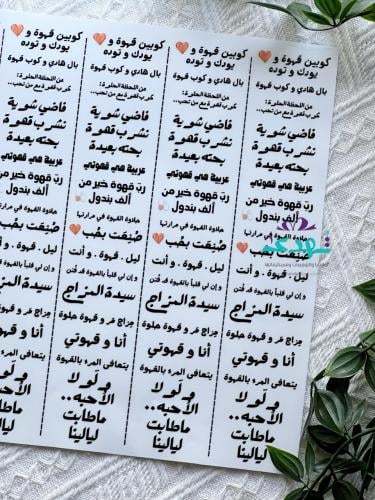 كوبين قهوة و
يودك و توده
بال هادي و كوب قهوة
من اللحظة الحلوة:
كوب قهوة مع من تحب...
فاضي شوية
نشرب قهوة
بحته بعيدة
عربية هي قهوتي
ربّ قهوة خير من
ألف بندول
حلاوة القهوة في مرارتها
صُنِعَت بحُب
ليل . قهوة . و أنت
و إن لي قلباً بالقهوة قد فُتن
سيدة المزاج
مزاج مُر و قهوة حلوة
أنا و قهوتي
يتعافى المرء بالقهوة
و لولا
الأحبه..
ماطابت
ليالينا
كوبين قهوة و
يودك و توده
بال هادي و كوب قهوة
من اللحظة الحلوة:
كوب قهوة مع من تحب...
فاضي شوية
نشرب قهوة
بحته بعيدة
عربية هي قهوتي
ربّ قهوة خير من
ألف بندول
حلاوة القهوة في مرارتها
صُنِعَت بحُب
ليل . قهوة . و أنت
و إن لي قلباً بالقهوة قد فُتن
سيدة المزاج
مزاج مُر و قهوة حلوة
أنا و قهوتي
يتعافى المرء بالقهوة
و لولا
الأحبه..
ماطابت
ليالينا
كوبين قهوة و
يودك و توده
بال هادي و كوب قهوة
من اللحظة الحلوة:
كوب قهوة مع من تحب...
فاضي شوية
نشرب قهوة
بحته بعيدة
عربية هي قهوتي
ربّ قهوة خير من
ألف بندول
حلاوة القهوة في مرارتها
صُنِعَت بحُب
ليل . قهوة . و أنت
و إن لي قلباً بالقهوة قد فُتن
سيدة المزاج
مزاج مُر و قهوة حلوة
أنا و قهوتي
يتعافى المرء بالقهوة
و لولا
الأحبه..
ماطابت
ليالينا
كوبين قهوة و
يودك و توده
بال هادي و كوب قهوة
من اللحظة الحلوة:
كوب قهوة مع من تحب...
فاضي شوية
نشرب قهوة
بحته بعيدة
عربية هي قهوتي
ربّ قهوة خير من
ألف بندول
حلاوة القهوة في مرارتها
صُنِعَت بحُب
ليل . قهوة . و أنت
و إن لي قلباً بالقهوة قد فُتن
سيدة المزاج
مزاج مُر و قهوة حلوة
أنا و قهوتي
يتعافى المرء بالقهوة
و لولا
الأحبه..
ماطابت
ليالينا